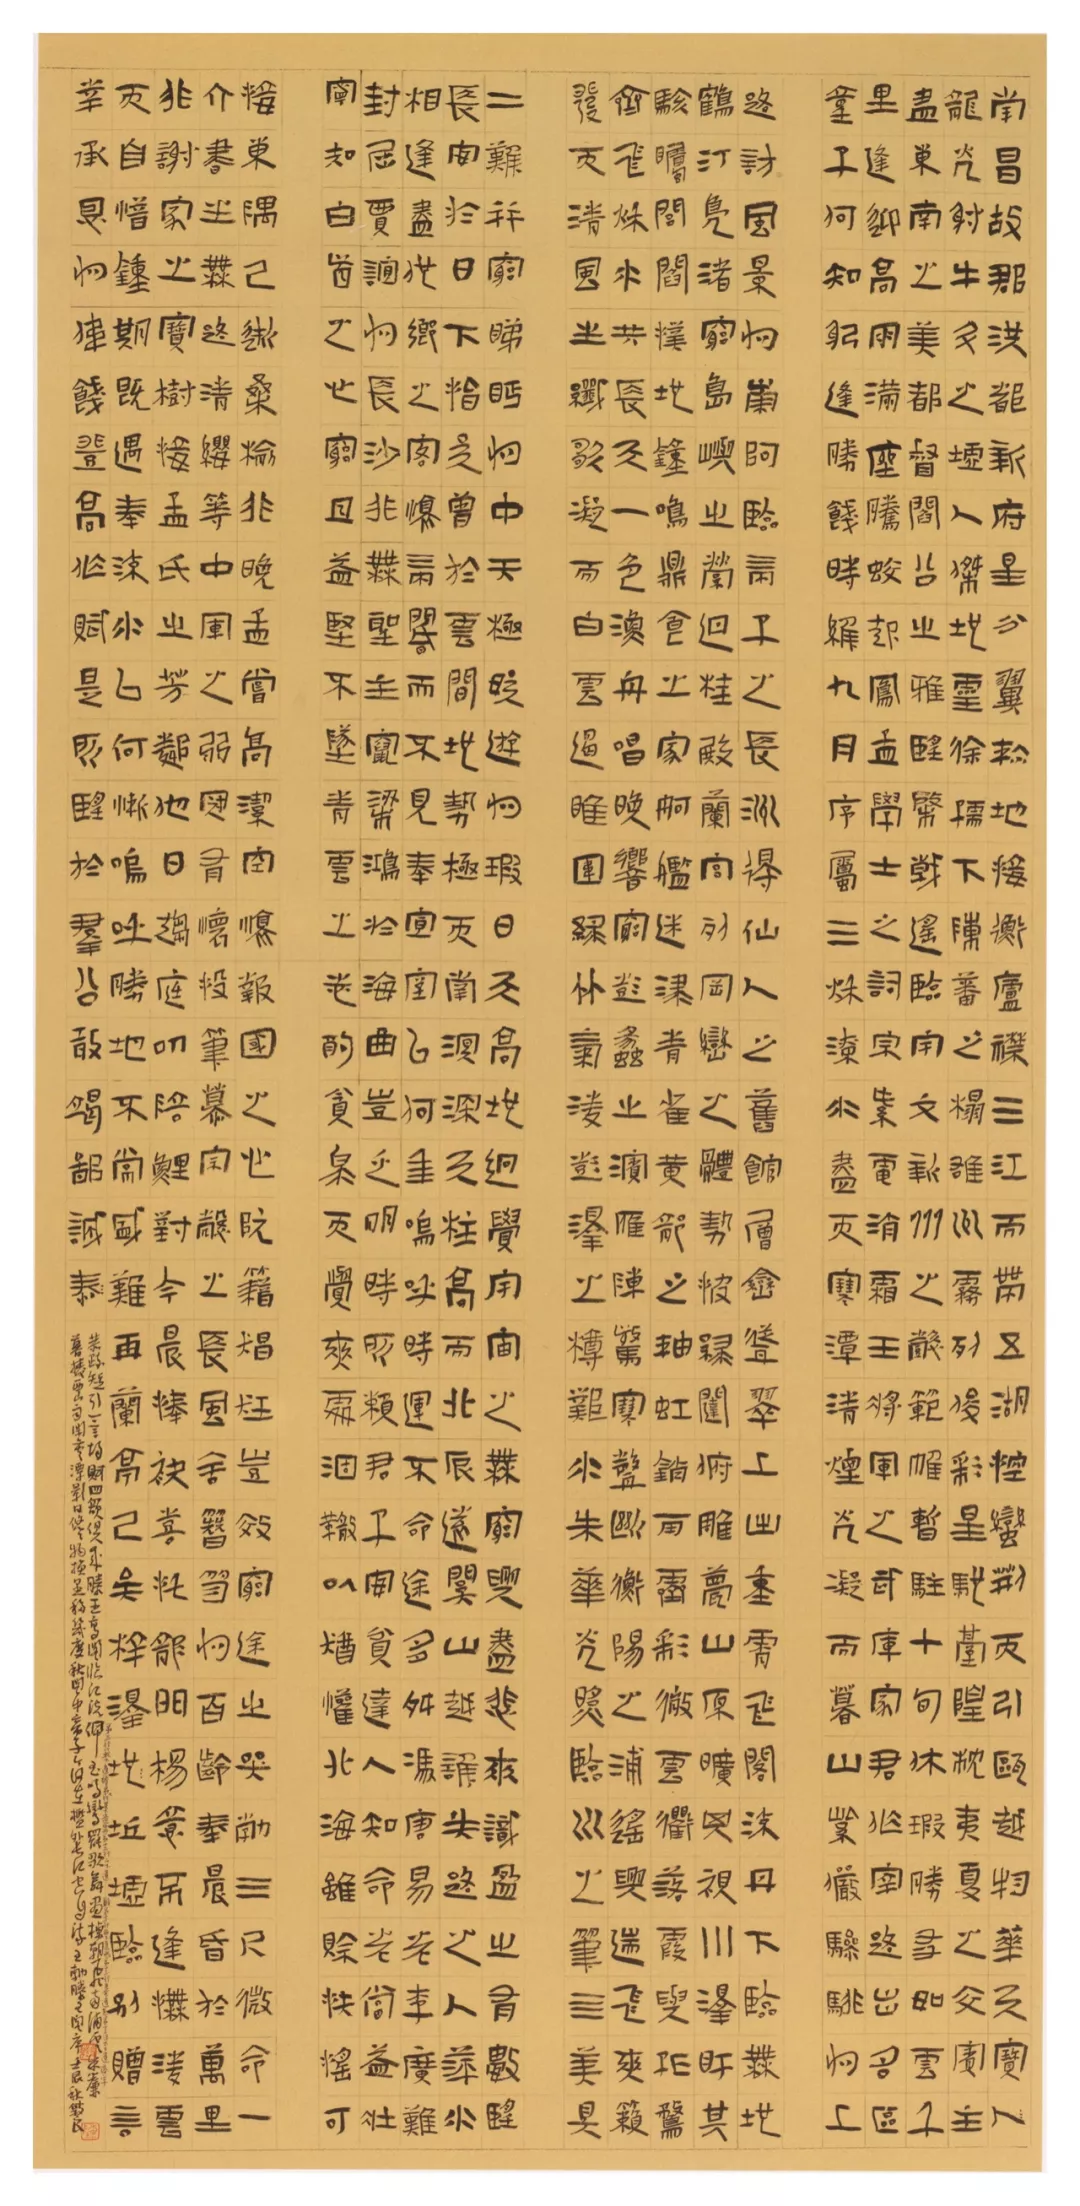 南昌故郡洪都新府星分翼軫地接衡廬襟三江而帶五湖控蠻荊而引甌越物華天寶人
龍光射牛斗之墟人傑地靈徐孺下陳蕃之榻雄州霧列俊彩星馳臺隍枕夷夏之交賓主
盡東南之美都督閻公之雅望棨戟遙臨宇文新州之懿範帷暫駐十旬休暇勝友如雲千
里逢迎高朋滿座騰蛟起鳳孟學士之詞宗紫電清霜王將軍之武庫家君作宰路出名區
童子何知躬逢勝餞時維九月序屬三秋潦水盡而寒潭清煙光凝而暮山紫儼驂騑於上
路訪風景於崇阿臨帝子之長洲得仙人之舊館層巒聳翠上出重霄飛閣流丹下臨無地
鶴汀鳧渚窮島嶼之縈迴桂殿蘭宮列岡巒之體勢披繡闥俯雕甍山原曠其視川澤盱其
駭矚閭閻撲地鐘鳴鼎食之家舸艦迷津青雀黃龍之軸虹銷雨霽彩徹雲衢落霞與孤鶩
齊飛秋水共長天一色漁舟唱晚響窮彭蠡之濱雁陣驚寒聲斷衡陽之浦遙興遄飛爽籟
發而清風生纖歌凝而白雲遏睢園綠竹氣凌彭澤之樽鄴水朱華光照臨川之筆四美具
二難并窮睇眄於中天極娛遊於暇日天高地迥覺宇宙之無窮興盡悲來識盈之有數望
長安於日下指吳會於雲間地勢極而南溟深天柱高而北辰遠關山越誰失路之人萍水
相逢盡他鄉之客懷帝閽而不見奉宣室以何年嗚呼時運不命途多舛馮唐易老李廣難
封屈賈誼於長沙非無聖主竄梁鴻於海曲豈乏明時所賴君子安貧達人知命老當益壯
寧知白首之心窮且益堅不墜青雲之志酌貪泉而覺爽處涸轍以猶懽北海雖賒扶搖可
接東隅已逝桑榆非晚孟嘗高潔空懷報國之心阮籍猖狂豈效窮途之哭勃三尺微命一
介書生無路清纓等中軍之弱冠有懷投筆慕宗愨之長風舍簪笏於百齡奉晨昏於萬里
非謝家之寶樹接孟氏之芳鄰他日趨庭叨陪鯉對今晨捧袂喜托龍門楊意不逢撫凌雲
而自惜鐘期既遇奉流水以何慚嗚呼勝地不常盛難再蘭亭已矣梓澤地丘墟臨別贈言
幸承恩於偉餞登高作賦是所望於群公敢竭鄙誠恭
恭疏短引一言均賦四韻俱成滕王高閣臨江渚佩玉鳴鸞罷歌舞畫棟朝飛南浦雲朱簾
暮捲西山雨閒雲潭影日悠悠物換星移幾度秋閣中帝子今何在檻外長江空自流王勃滕王閣序